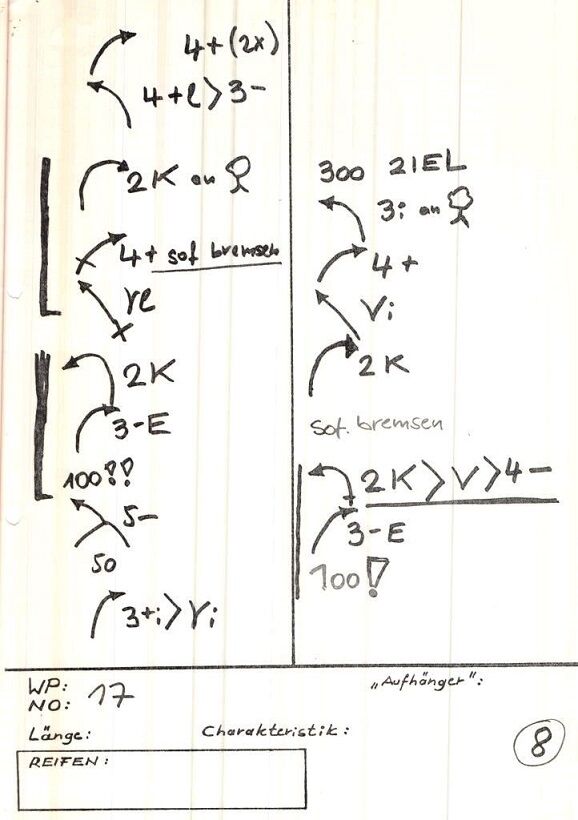 4+(2x)
4+e>3-
2K an
4+ sof bremsen
Ve
2K
3-E
100!!
5-
50
3+i>Vi
300 ZIEL
3i an
4+
Vi
2K
sof. bremsen
2K>V>4-
3-E
100!
WP: 17
NO:
„Aufhänger":
Länge:
Charakteristik:
8
REIFEN: